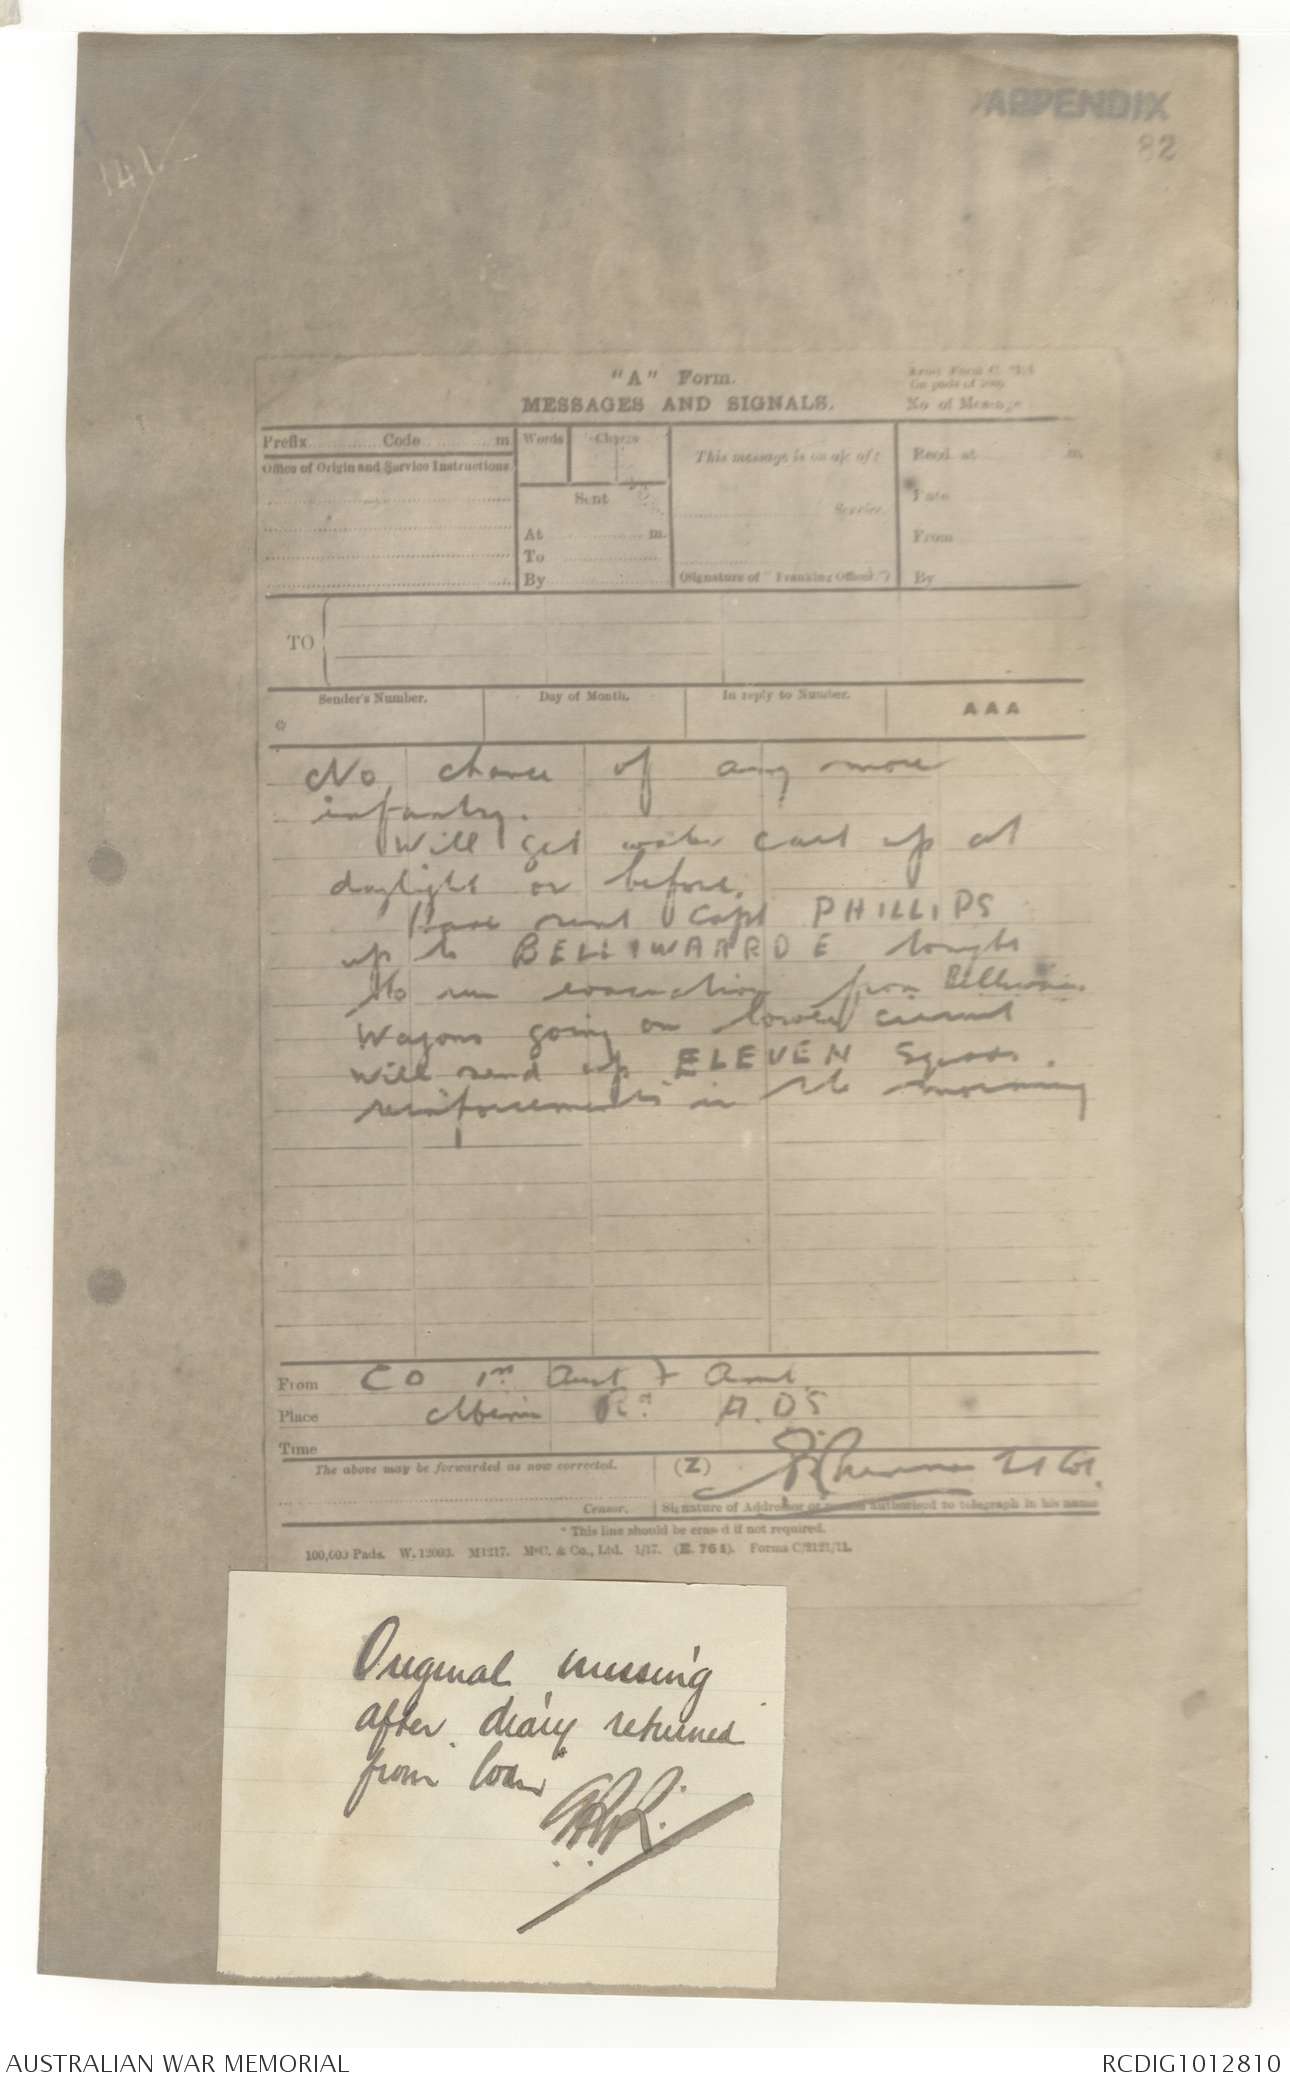 APPENDIX
82
141
"A" Form.
MESSAGES AND SIGNALS.
No. of Message
Prefix Code m
Words
Charge
This message is on a/c of:
Recd. at m.
Office of Origin and Service Instructions
Sent
Service.
Date
At m.
From
To
By
(Signature of "Franking Officer.")
By
TO
Sender's Number.
Day of Month.
In reply to Number.
AAA
*
No chance of any more
infantry.
Will get water cart up at
daylight or before.
Have sent Capt PHILLIPS
up to BELLIWAARDE tonight
to run evacuation from
Wagons going on lower circuit
will send up ELEVEN Squads
reinforcements in the morning
From CO 1st Aust F Amb.
Place Menin Rd A.D.S
Time
The above may be forwarded as now corrected.
(Z)
Lt Col.
Censor.
Signature of Addressor or person authorised to telegraph in his name
* This line should be erased if not required.
100,000 Pads. W. 12093. M1217. McC. & Co., Ltd. 1/17. (E. 764). Forms C/2121/11.
Original missing
after diary returned
from loan
AUSTRALIAN WAR MEMORIAL
RCDIG1012810